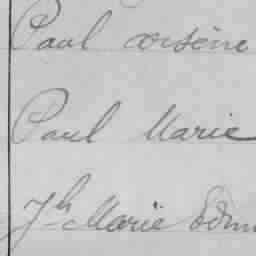 Paul Arsène
Paul Marie
Jh Marie Edm